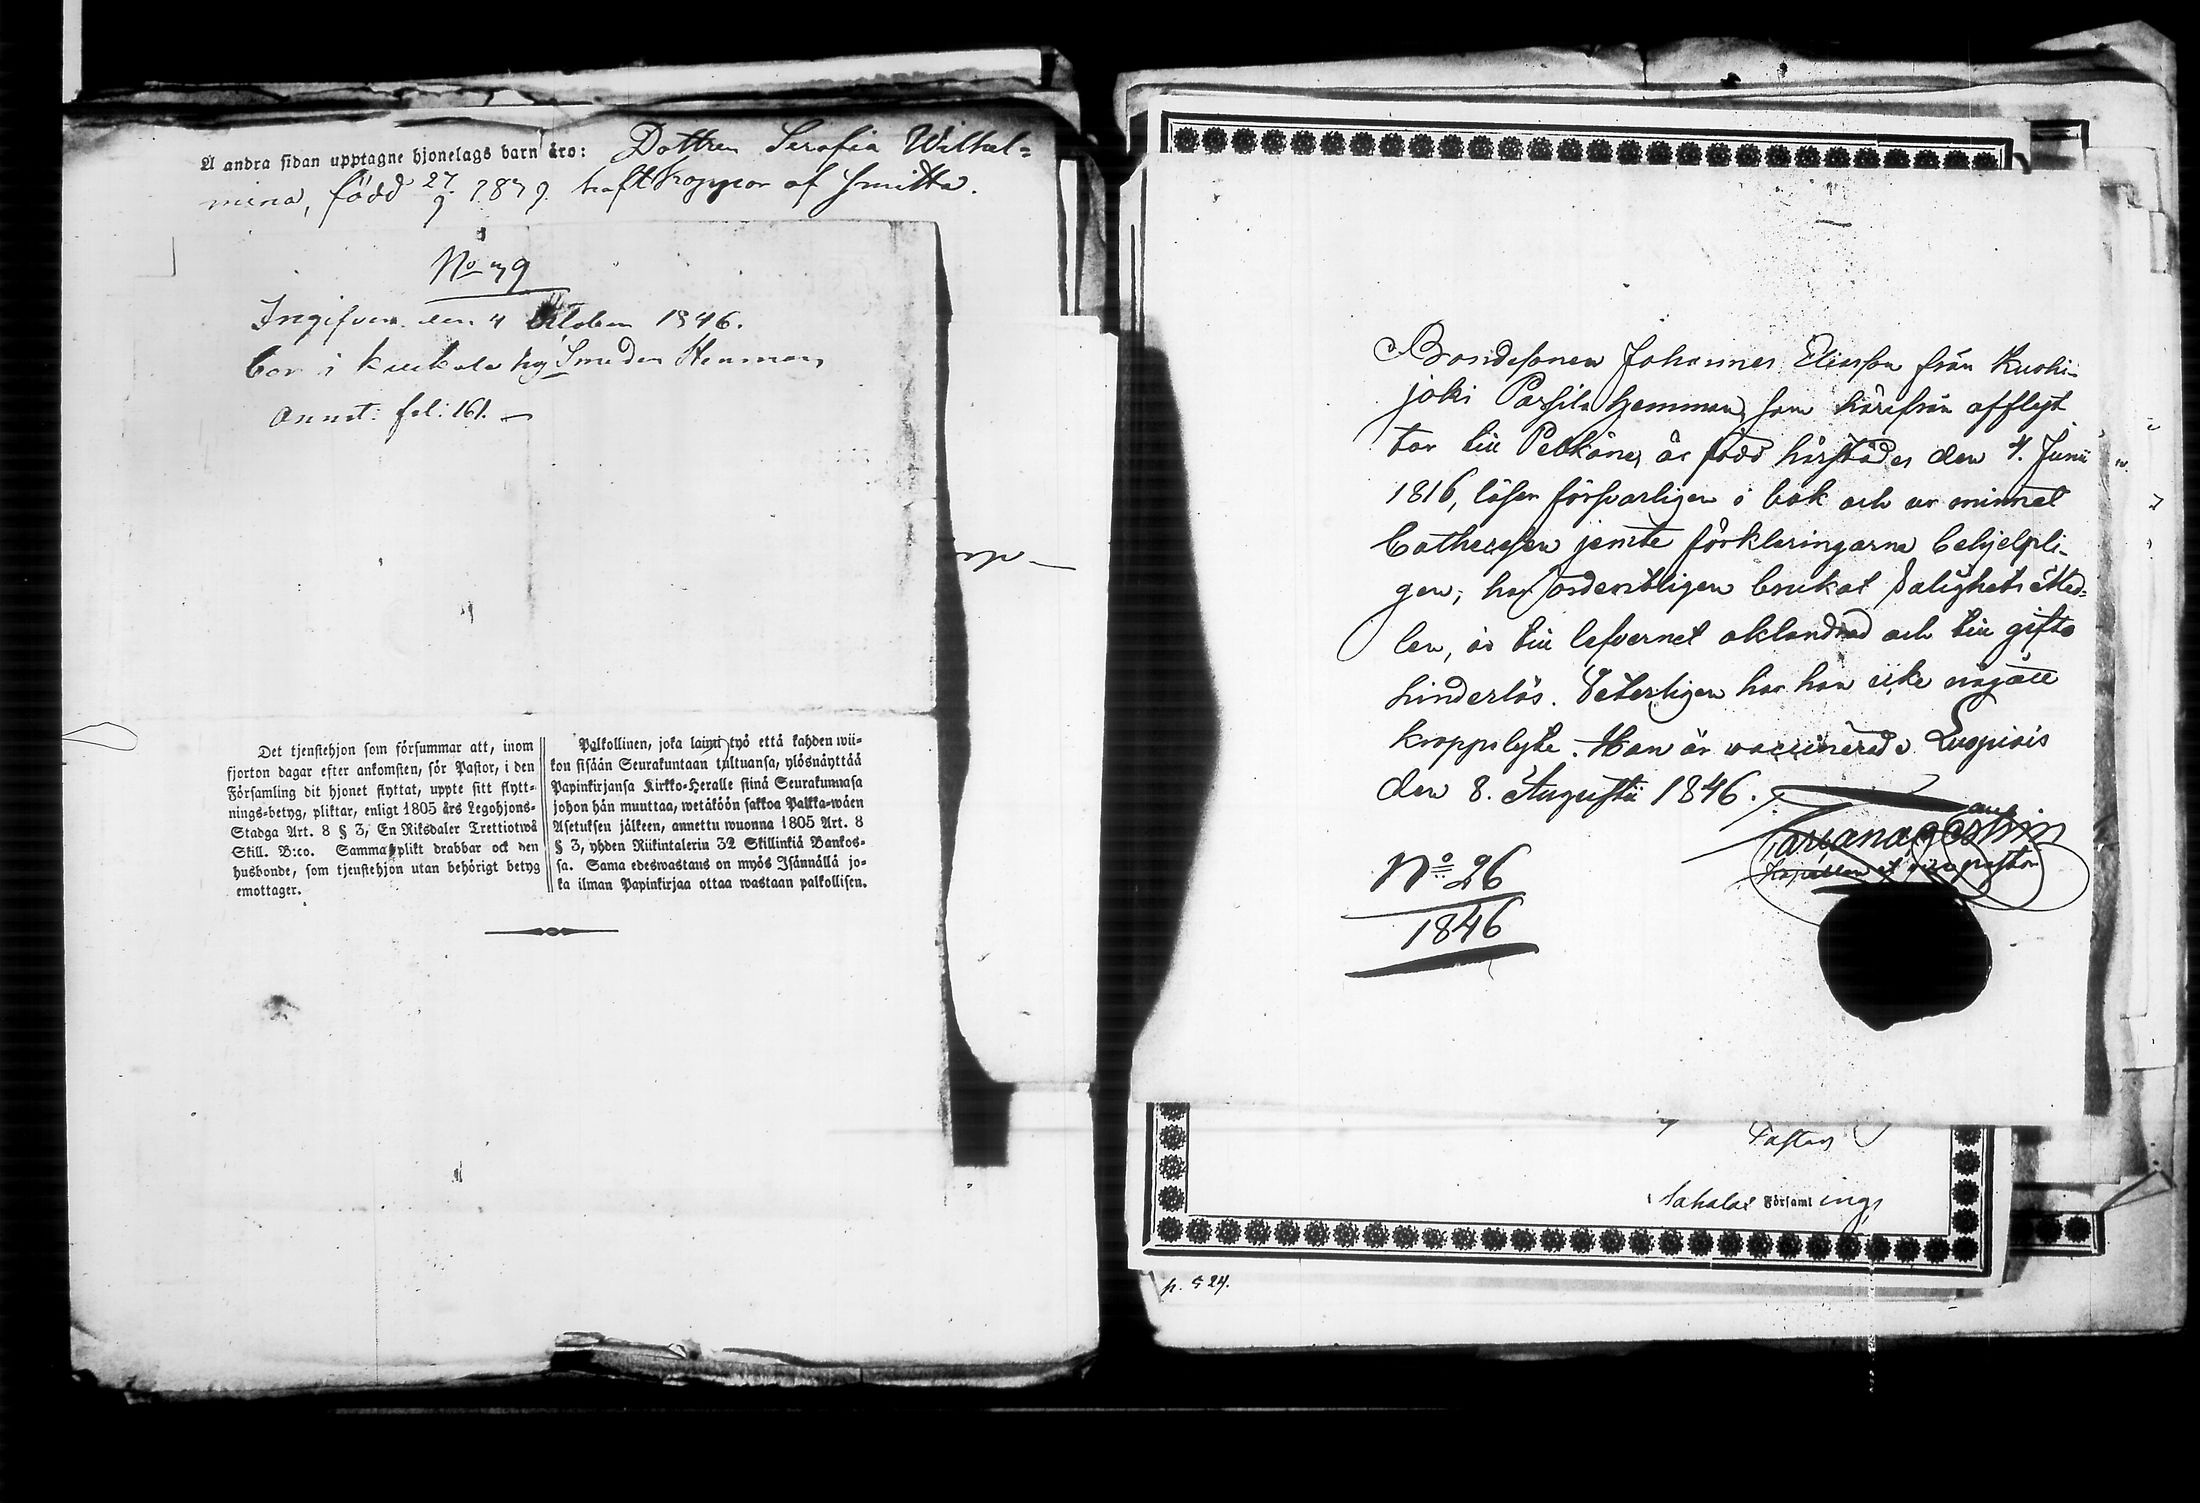 Å andra sidan upptagne hjonelags barn äro: Dottren Serafia Wilhel=
mina, född 27/9 1879. haft koppor af smitta.
No 79
Ingifven den 4 October 1846.
bor i Kuckola by Smeden Henman
annot: fol: 161.
Det tjenstehjon som försummar att, inom
fjorton dagar efter ankomsten, för Pastor, i den
Församling dit hjonet flyttat, uppte sitt flytt-
nings-betyg, pliktar, enligt 1805 års Legohjons-
Stadga Art. 8 § 3, En Riksdaler Trettiotwå
Skill. B:co. Samma plikt drabbar ock den
husbonde, som tjenstehjon utan behörigt betyg
emottager.
Palkollinen, joka laimi lyö että kahden wii-
kon sisään Seurakuntaan tultuansa, ylösnäyttää
Papinkirjansa Kirkko-Heralle siinä Seurakunnasa
johon hän muuttaa, wetäköön sakkoa Palkka-wäen
Asetuksen jälkeen, annettu wuonna 1805 Art. 8
§ 3, yhden Riikintalerin 32 Skillinkiä Bankos-
sa. Sama edeswastaus on myös Isännällä jo-
ka ilman Papinkirjaa ottaa wastaan palkollisen.
Bondesonen Johannes Eliasson från Kuohi-
joki Parsila hemman, som härifrån afflyt
tar till Pelkäne, är född härstädes den 4. Junii
1816, läser försvarligen i bok och ur minnet
Cathechesen jemte förklaringarne behjelpli-
gen, har ordentligen brukat Salighets Med-
len, är till lefvernet oklandrad och till gifte
hinderlös. Veterligen har han icke någott
kroppslyte. Han är vaccinerad. Luopiois
den 8. Augustii 1846.
No 26
1846
Pastor
Sahalax Församlings
p. 524.